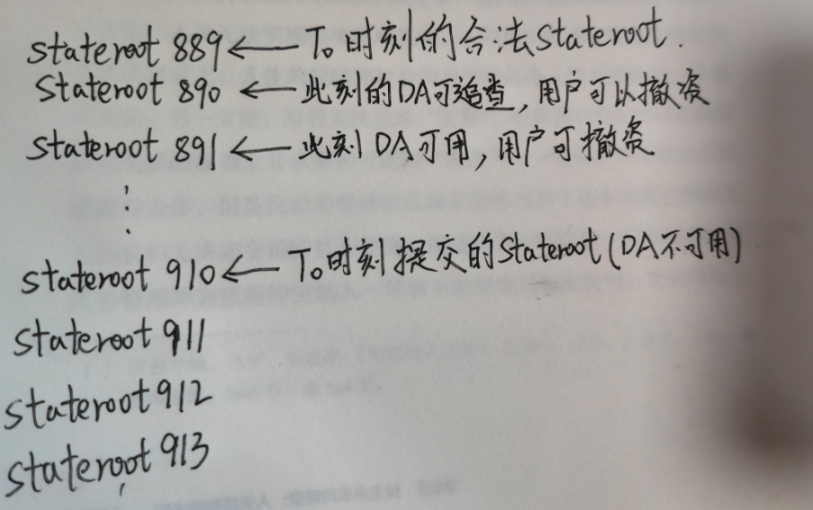 stateroot 889 ← T₀时刻的合法Stateroot.
Stateroot 890 ← 此刻的DA可追查,用户可以撤资
stateroot 891 ← 此刻DA可用,用户可撤资
⋮
stateroot 910 ← T₀时刻提交的Stateroot(DA不可用)
stateroot 911
stateroot 912
stateroot 913